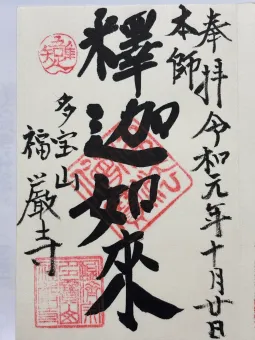 奉拝 令和元年十月廿日
本師
釋迦如來
多宝山
福嚴寺